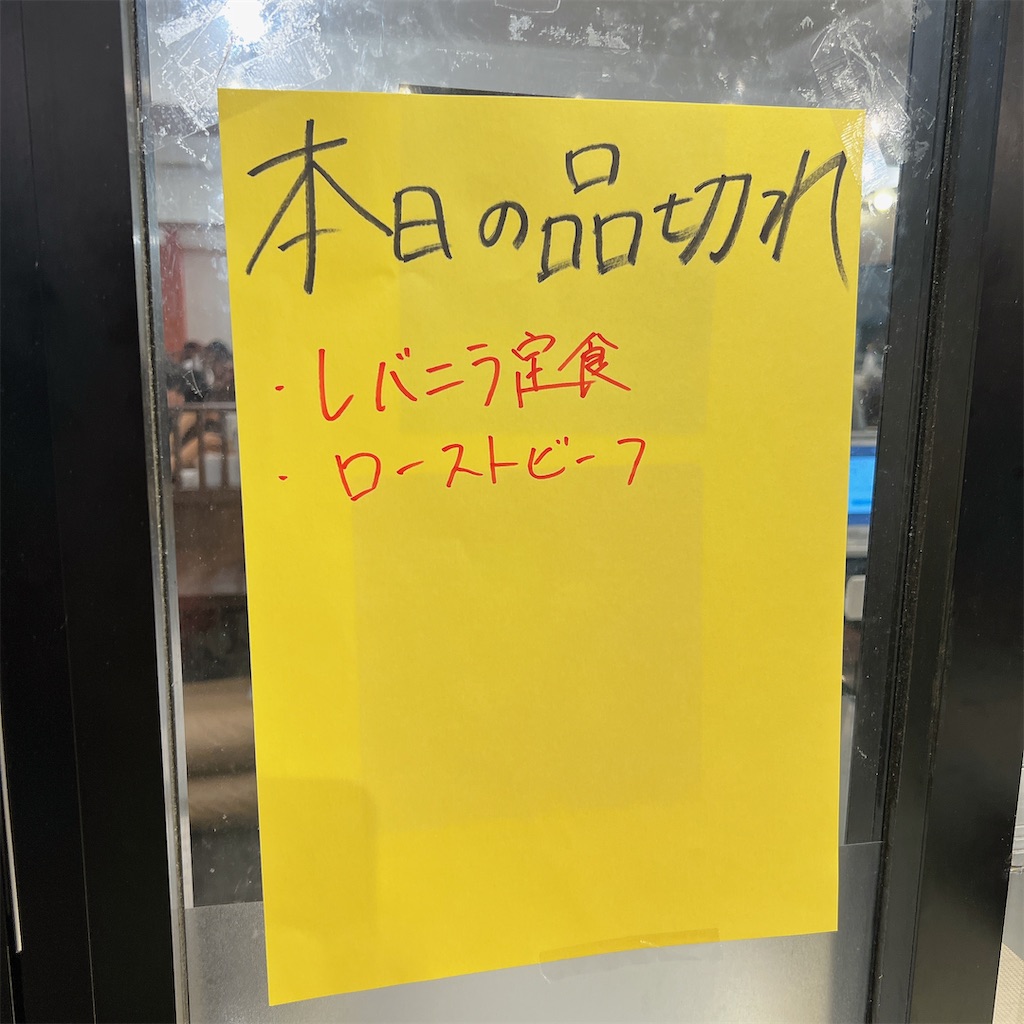 本日の品切れ
・レバニラ定食
・ローストビーフ